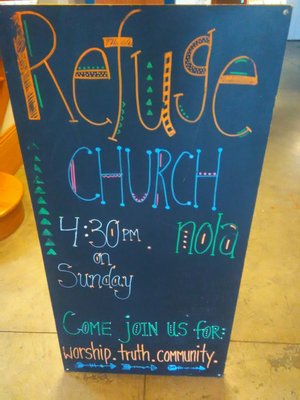 Refuge
CHURCH
4:30 PM. nola
on
Sunday
COME JOIN US FOR:
worship.truth.community.